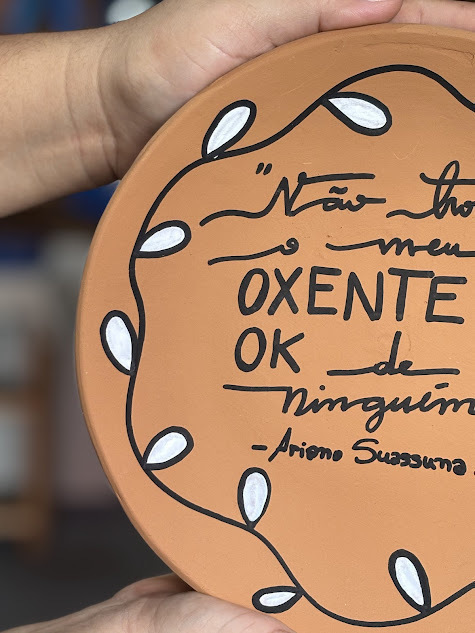 "Não tro
o meu
OXENTE
OK de
ninguém
- Ariano Suassuna